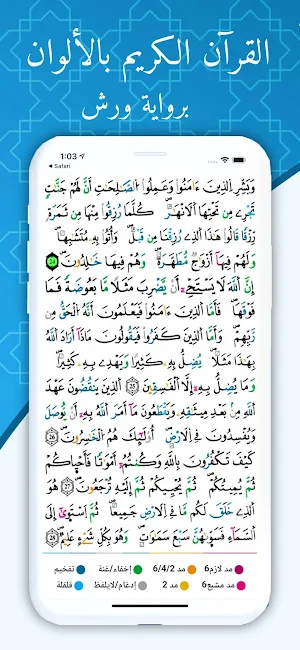 القرآن الكريم بالألوان
برواية ورش
1:03
Safari
وَبَشِّرِ اِلذِينَ ءَامَنُوا وَعَمِلُوا اُلصَّٰلِحَٰتِ أَنَّ لَهُمْ جَنَّٰتٖ
تَجْرِے مِن تَحْتِهَا اَلَانْهَٰرُ كُلَّمَا رُزِقُوا مِنْهَا مِن ثَمَرَةٖ
رِّزْقاٗ قَالُوا هَٰذَا اَلذِے رُزِقْنَا مِن قَبْلُ وَأُتُوا بِهِۦ مُتَشَٰبِهاٗ
وَلَهُمْ فِيهَا أَزْوَٰجٞ مُّطَهَّرَةٞ وَهُمْ فِيهَا خَٰلِدُونَ 24
إِنَّ اَللَّهَ لَا يَسْتَحْيِۦ أَنْ يَّضْرِبَ مَثَلاٗ مَّا بَعُوضَةٗ فَمَا
فَوْقَهَا فَأَمَّا اَلذِينَ ءَامَنُوا فَيَعْلَمُونَ أَنَّهُ اُلْحَقُّ مِن
رَّبِّهِمْ وَأَمَّا اَلذِينَ كَفَرُوا فَيَقُولُونَ مَاذَا أَرَادَ اَللَّهُ
بِهَٰذَا مَثَلاٗ يُضِلُّ بِهِۦ كَثِيراٗ وَيَهْدِے بِهِۦ كَثِيراٗ
وَمَا يُضِلُّ بِهِۦ إِلَّا اَلْفَٰسِقِينَ 25 اَلذِينَ يَنقُضُونَ عَهْدَ
اَللَّهِ مِنۢ بَعْدِ مِيثَٰقِهِۦ وَيَقْطَعُونَ مَا أَمَرَ اَللَّهُ بِهِۦ أَنْ يُّوصَلَ
وَيُفْسِدُونَ فِے اِلَارْضِ أُوْلَٰئِكَ هُمُ اُلْخَٰسِرُونَ 26
كَيْفَ تَكْفُرُونَ بِاللَّهِ وَكُنتُمْ أَمْوَٰتاٗ فَأَحْيَٰكُمْ
ثُمَّ يُمِيتُكُمْ ثُمَّ يُحْيِيكُمْ ثُمَّ إِلَيْهِ تُرْجَعُونَ 27 هُوَ
اَلذِے خَلَقَ لَكُم مَّا فِے اِلَارْضِ جَمِيعاٗ ثُمَّ اَسْتَوَىٰ إِلَى
اَلسَّمَاءِ فَسَوَّىٰهُنَّ سَبْعَ سَمَٰوَٰتٖ وَهُوَ بِكُلِّ شَےْءٍ عَلِيمٞ 28
مد لازم6 مد 6/4/2 إخفاء/غنة تفخيم
مد مشبع6 مد 2 إدغام/لايلفظ قلقلة